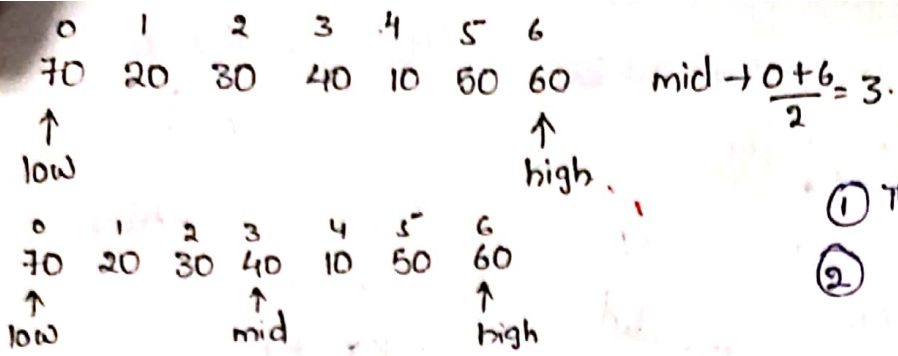 0 1 2 3 4 5 6
70 20 30 40 10 50 60 mid → 0+6/2 = 3.
↑ ↑
low high.
① T
0 1 2 3 4 5 6
70 20 30 40 10 50 60
②
↑ ↑ ↑
low mid high